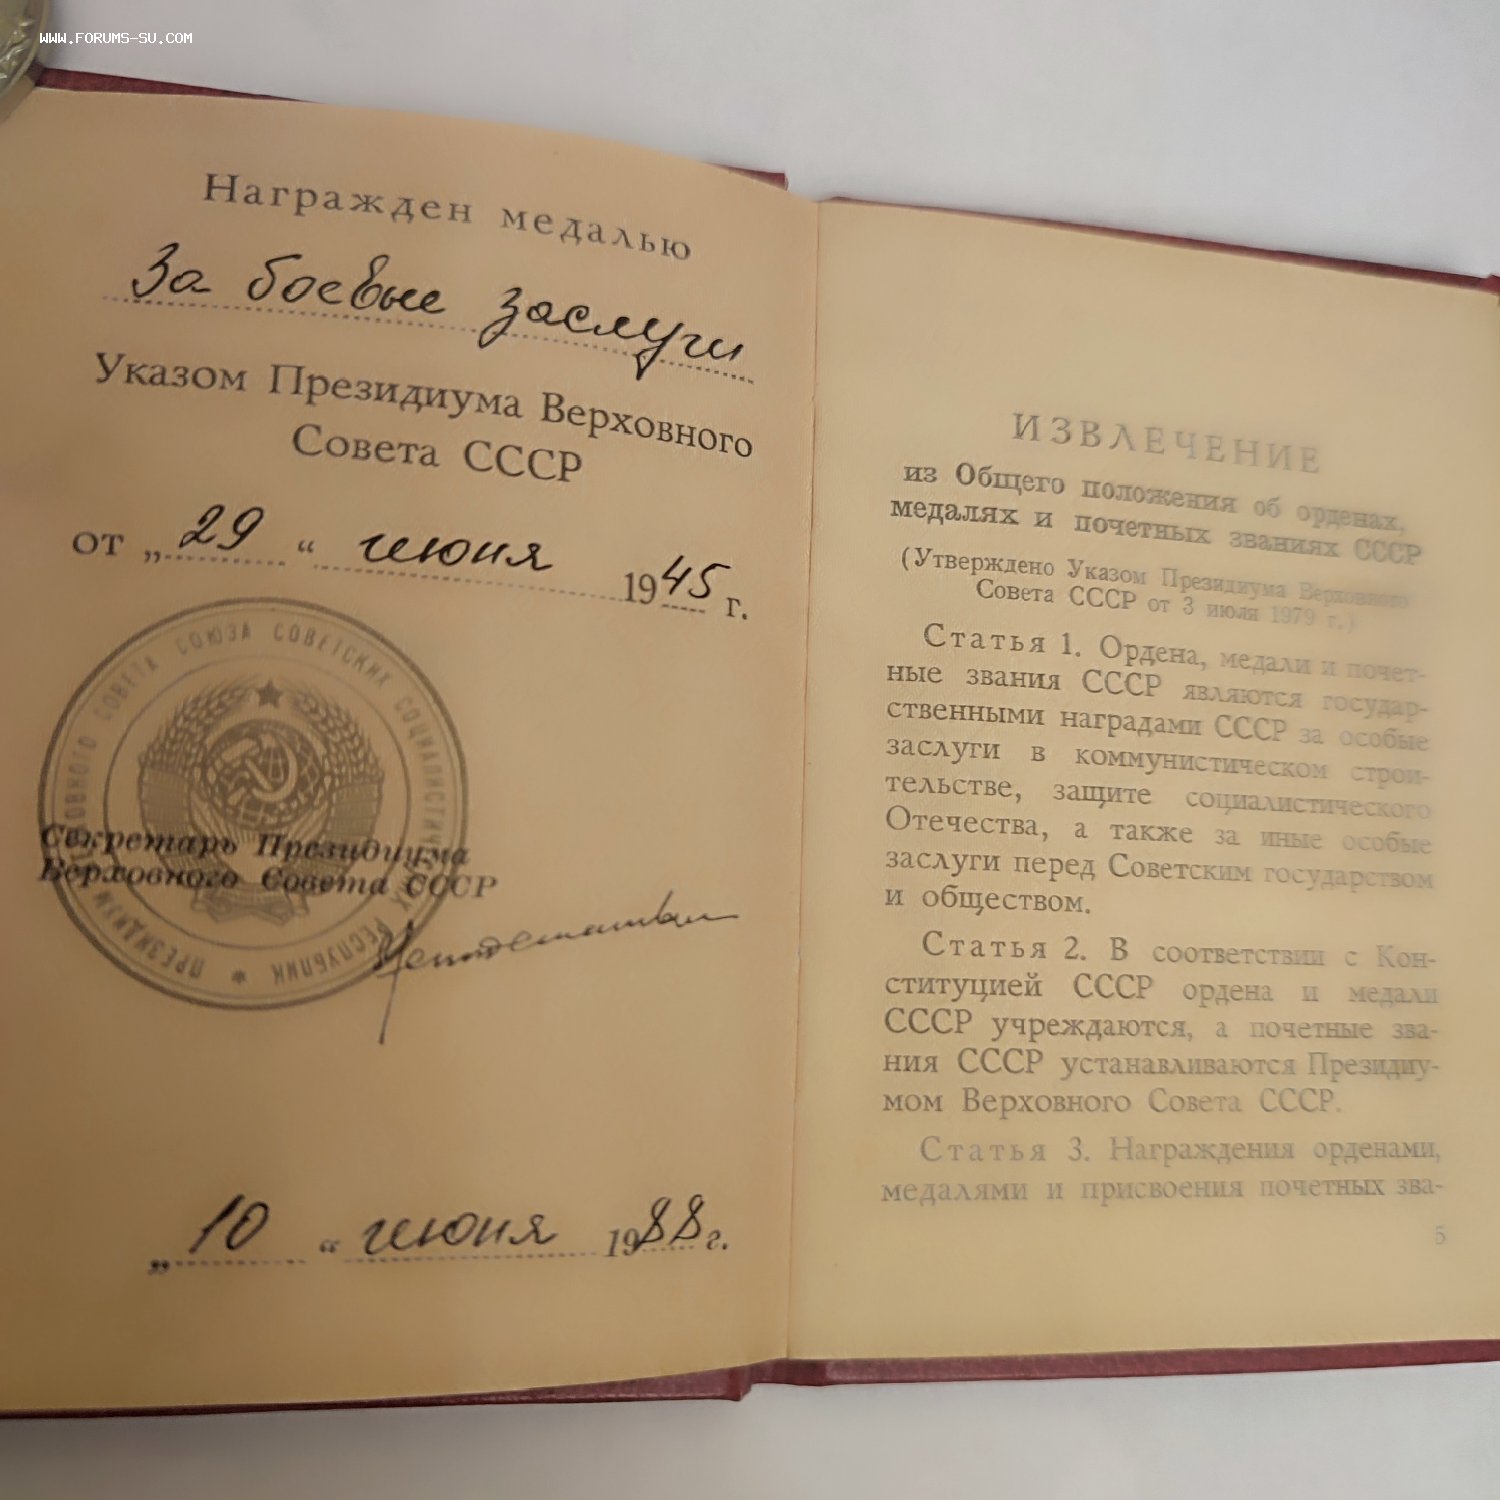 WWW.FORUMS-SU.COM
Награжден медалью
За боевые заслуги
Указом Президиума Верховного
Совета СССР
от „29“ июня 1945 г.
ПРЕЗИДИУМ ВЕРХОВНОГО СОВЕТА СОЮЗА СОВЕТСКИХ СОЦИАЛИСТИЧЕСКИХ РЕСПУБЛИК
Секретарь Президиума
Верховного Совета СССР
„10“ июня 1988 г.
ИЗВЛЕЧЕНИЕ
из Общего положения об орденах,
медалях и почетных званиях СССР
(Утверждено Указом Президиума Верховного
Совета СССР от 3 июля 1979 г.)
Статья 1. Ордена, медали и почет-
ные звания СССР являются государ-
ственными наградами СССР за особые
заслуги в коммунистическом строи-
тельстве, защите социалистического
Отечества, а также за иные особые
заслуги перед Советским государством
и обществом.
Статья 2. В соответствии с Кон-
ституцией СССР ордена и медали
СССР учреждаются, а почетные зва-
ния СССР устанавливаются Президиу-
мом Верховного Совета СССР.
Статья 3. Награждения орденами,
медалями и присвоения почетных зва-
5